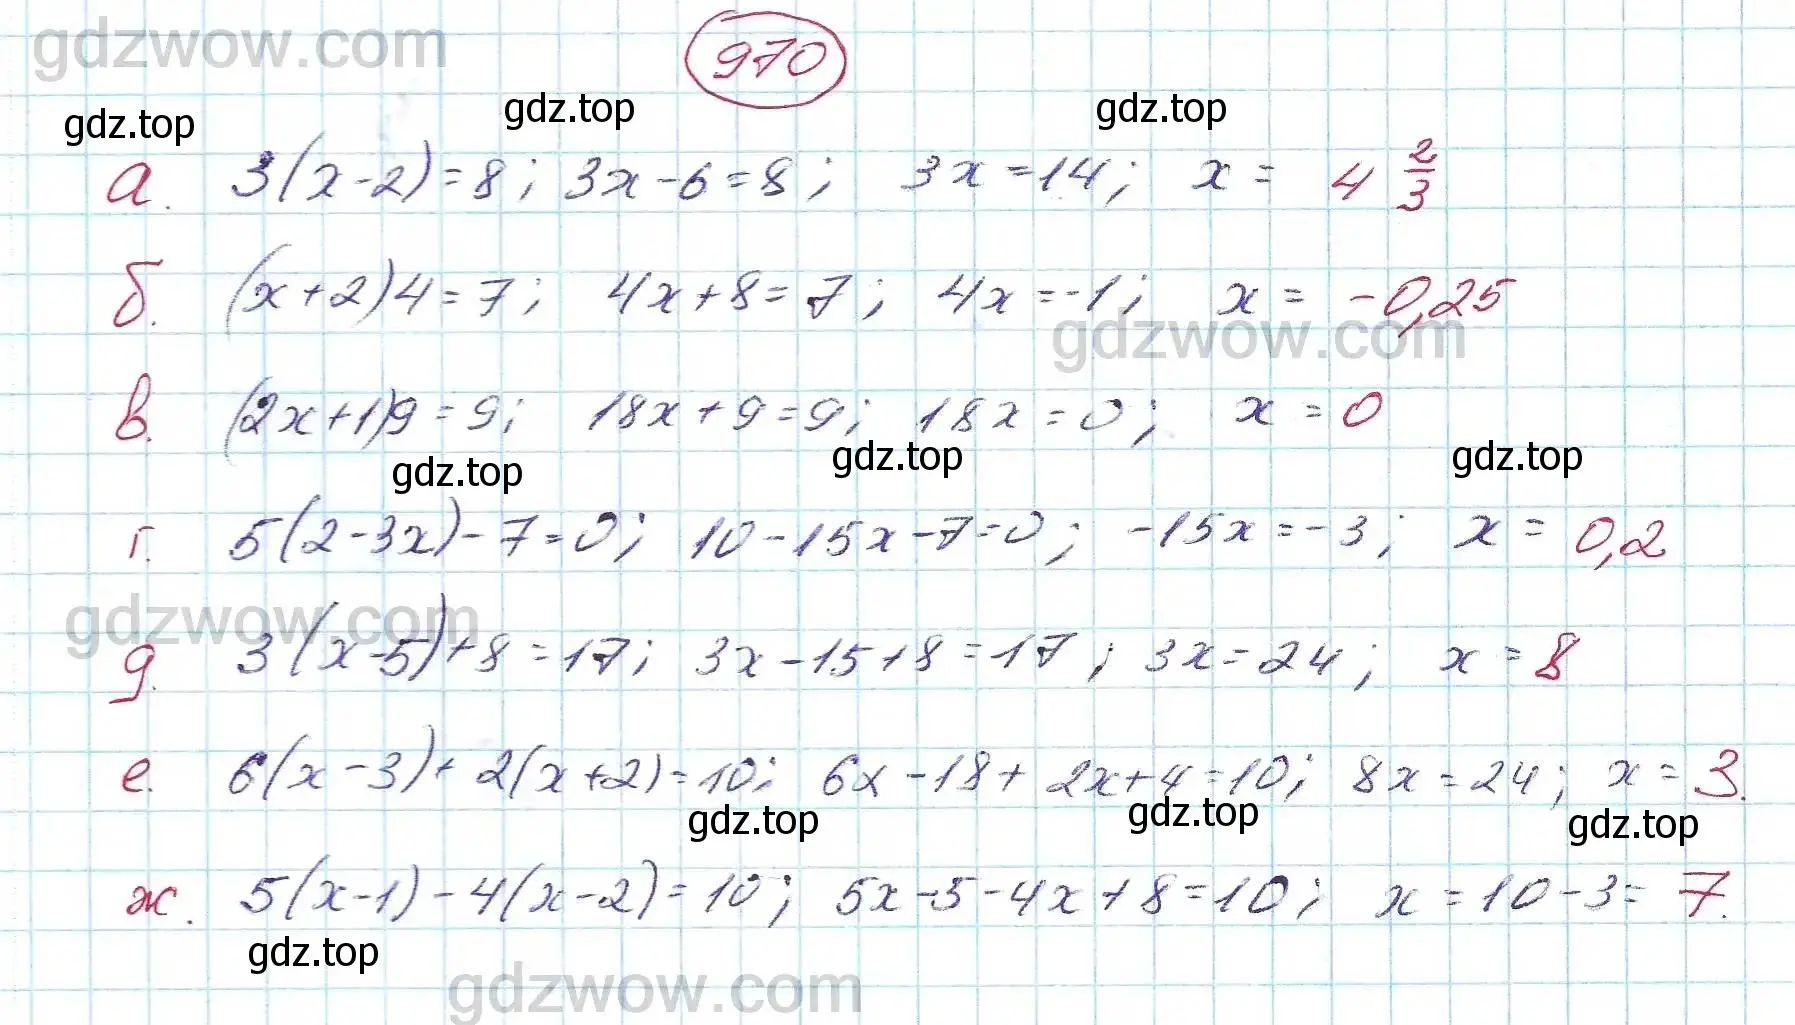 gdzwow.com
970
gdz.top gdz.top gdz.top
а. 3(x-2)=8; 3x-6=8; 3x=14; x= 4 2/3
б. (x+2)4=7; 4x+8=7; 4x=-1; x= -0,25
gdzwow.com
в. (2x+1)9=9; 18x+9=9; 18x=0; x=0
gdz.top gdz.top gdz.top
г. 5(2-3x)-7=0; 10-15x-7=0; -15x=-3; x= 0,2
gdzwow.com
д. 3(x-5)+8=17; 3x-15+8=17; 3x=24; x=8
е. 6(x-3)+2(x+2)=10; 6x-18+2x+4=10; 8x=24; x=3.
gdz.top gdz.top gdz.top
ж. 5(x-1)-4(x-2)=10; 5x-5-4x+8=10; x=10-3=7.
gdz.top
gdzwow.com